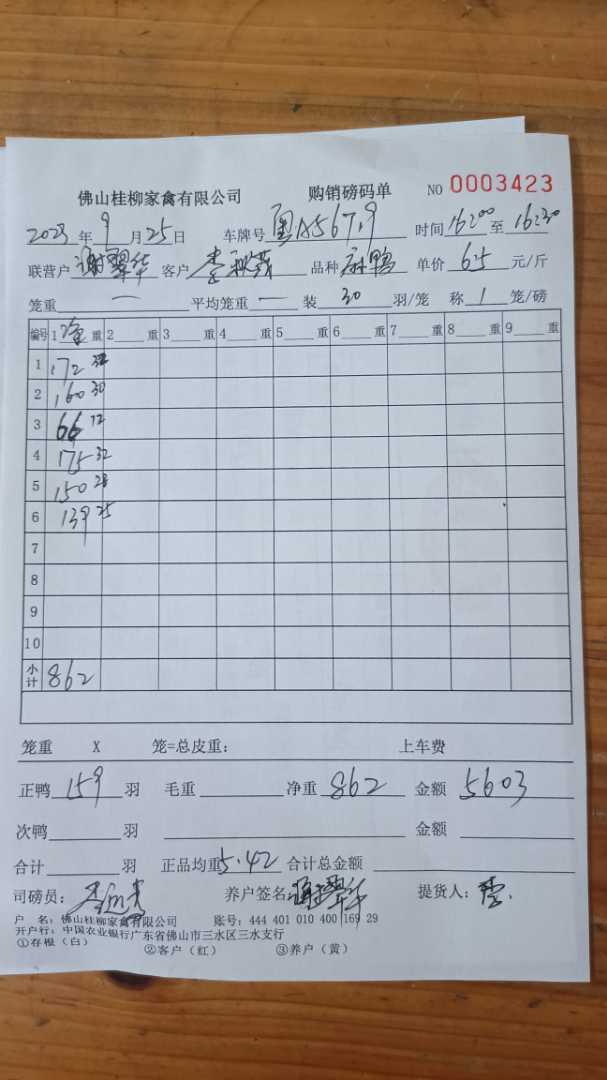 佛山桂柳家禽有限公司 购销磅码单 NO 0003423
2023年9月25日 车牌号 粤A567.9 时间16:00至16:30
联营户谢翠华 客户李 品种麻鸭 单价65元/斤
笼重一 平均笼重一 装30羽/笼 称1笼/磅
编号 1净重 2重 3重 4重 5重 6重 7重 8重 9重
1 172 32
2 160 30
3 66 12
4 175 32
5 150 28
6 139 25
7
8
9
10
小计 862
笼重 X 笼=总皮重: 上车费
正鸭159羽 毛重 净重862 金额5603
次鸭 羽 金额
合计 羽 正品均重5.42 合计总金额
司磅员: 李 养户签名谢翠华 提货人: 李.
户 名: 佛山桂柳家禽有限公司 账号: 444 401 010 400 169 29
开户行: 中国农业银行广东省佛山市三水区三水支行
①存根（白） ②客户（红） ③养户（黄）